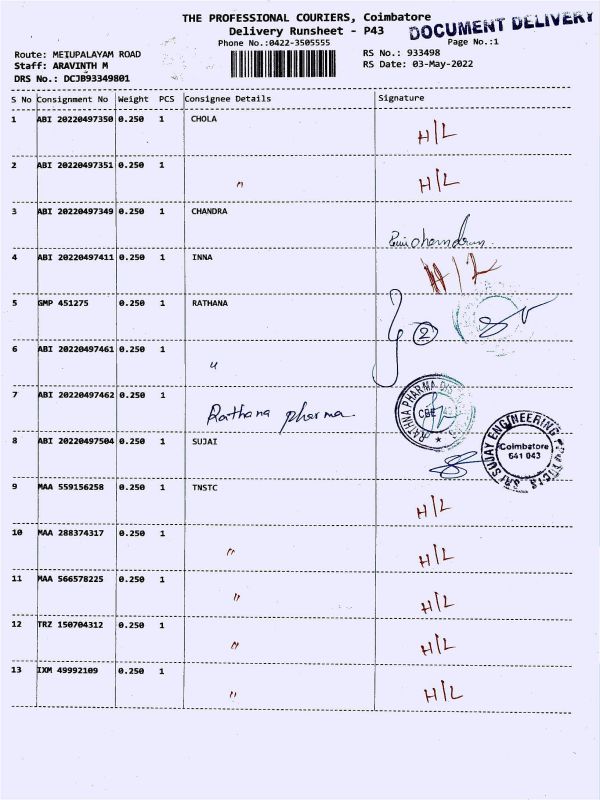 THE PROFESSIONAL COURIERS, Coimbatore
DOCUMENT DELIVERY
Delivery Runsheet - P43
Phone No.:0422-3505555
Page No.:1
Route: METUPALAYAM ROAD
RS No.: 933498
Staff: ARAVINTH M
RS Date: 03-May-2022
DRS No.: DCJB93349801
S No Consignment No Weight PCS Consignee Details Signature
1 ABI 20220497350 0.250 1 CHOLA H/L
2 ABI 20220497351 0.250 1 〃 H/L
3 ABI 20220497349 0.250 1 CHANDRA
4 ABI 20220497411 0.250 1 INNA H/L
5 GMP 451275 0.250 1 RATHANA 2
6 ABI 20220497461 0.250 1 〃
7 ABI 20220497462 0.250 1 Rathana pharma RATHNA PHARMA CBE
8 ABI 20220497504 0.250 1 SUJAI SRI SUJAY ENGINEERING Coimbatore 641 043
9 MAA 559156258 0.250 1 TNSTC H/L
10 MAA 288374317 0.250 1 〃 H/L
11 MAA 566578225 0.250 1 〃 H/L
12 TRZ 150704312 0.250 1 〃 H/L
13 IXM 49992109 0.250 1 〃 H/L